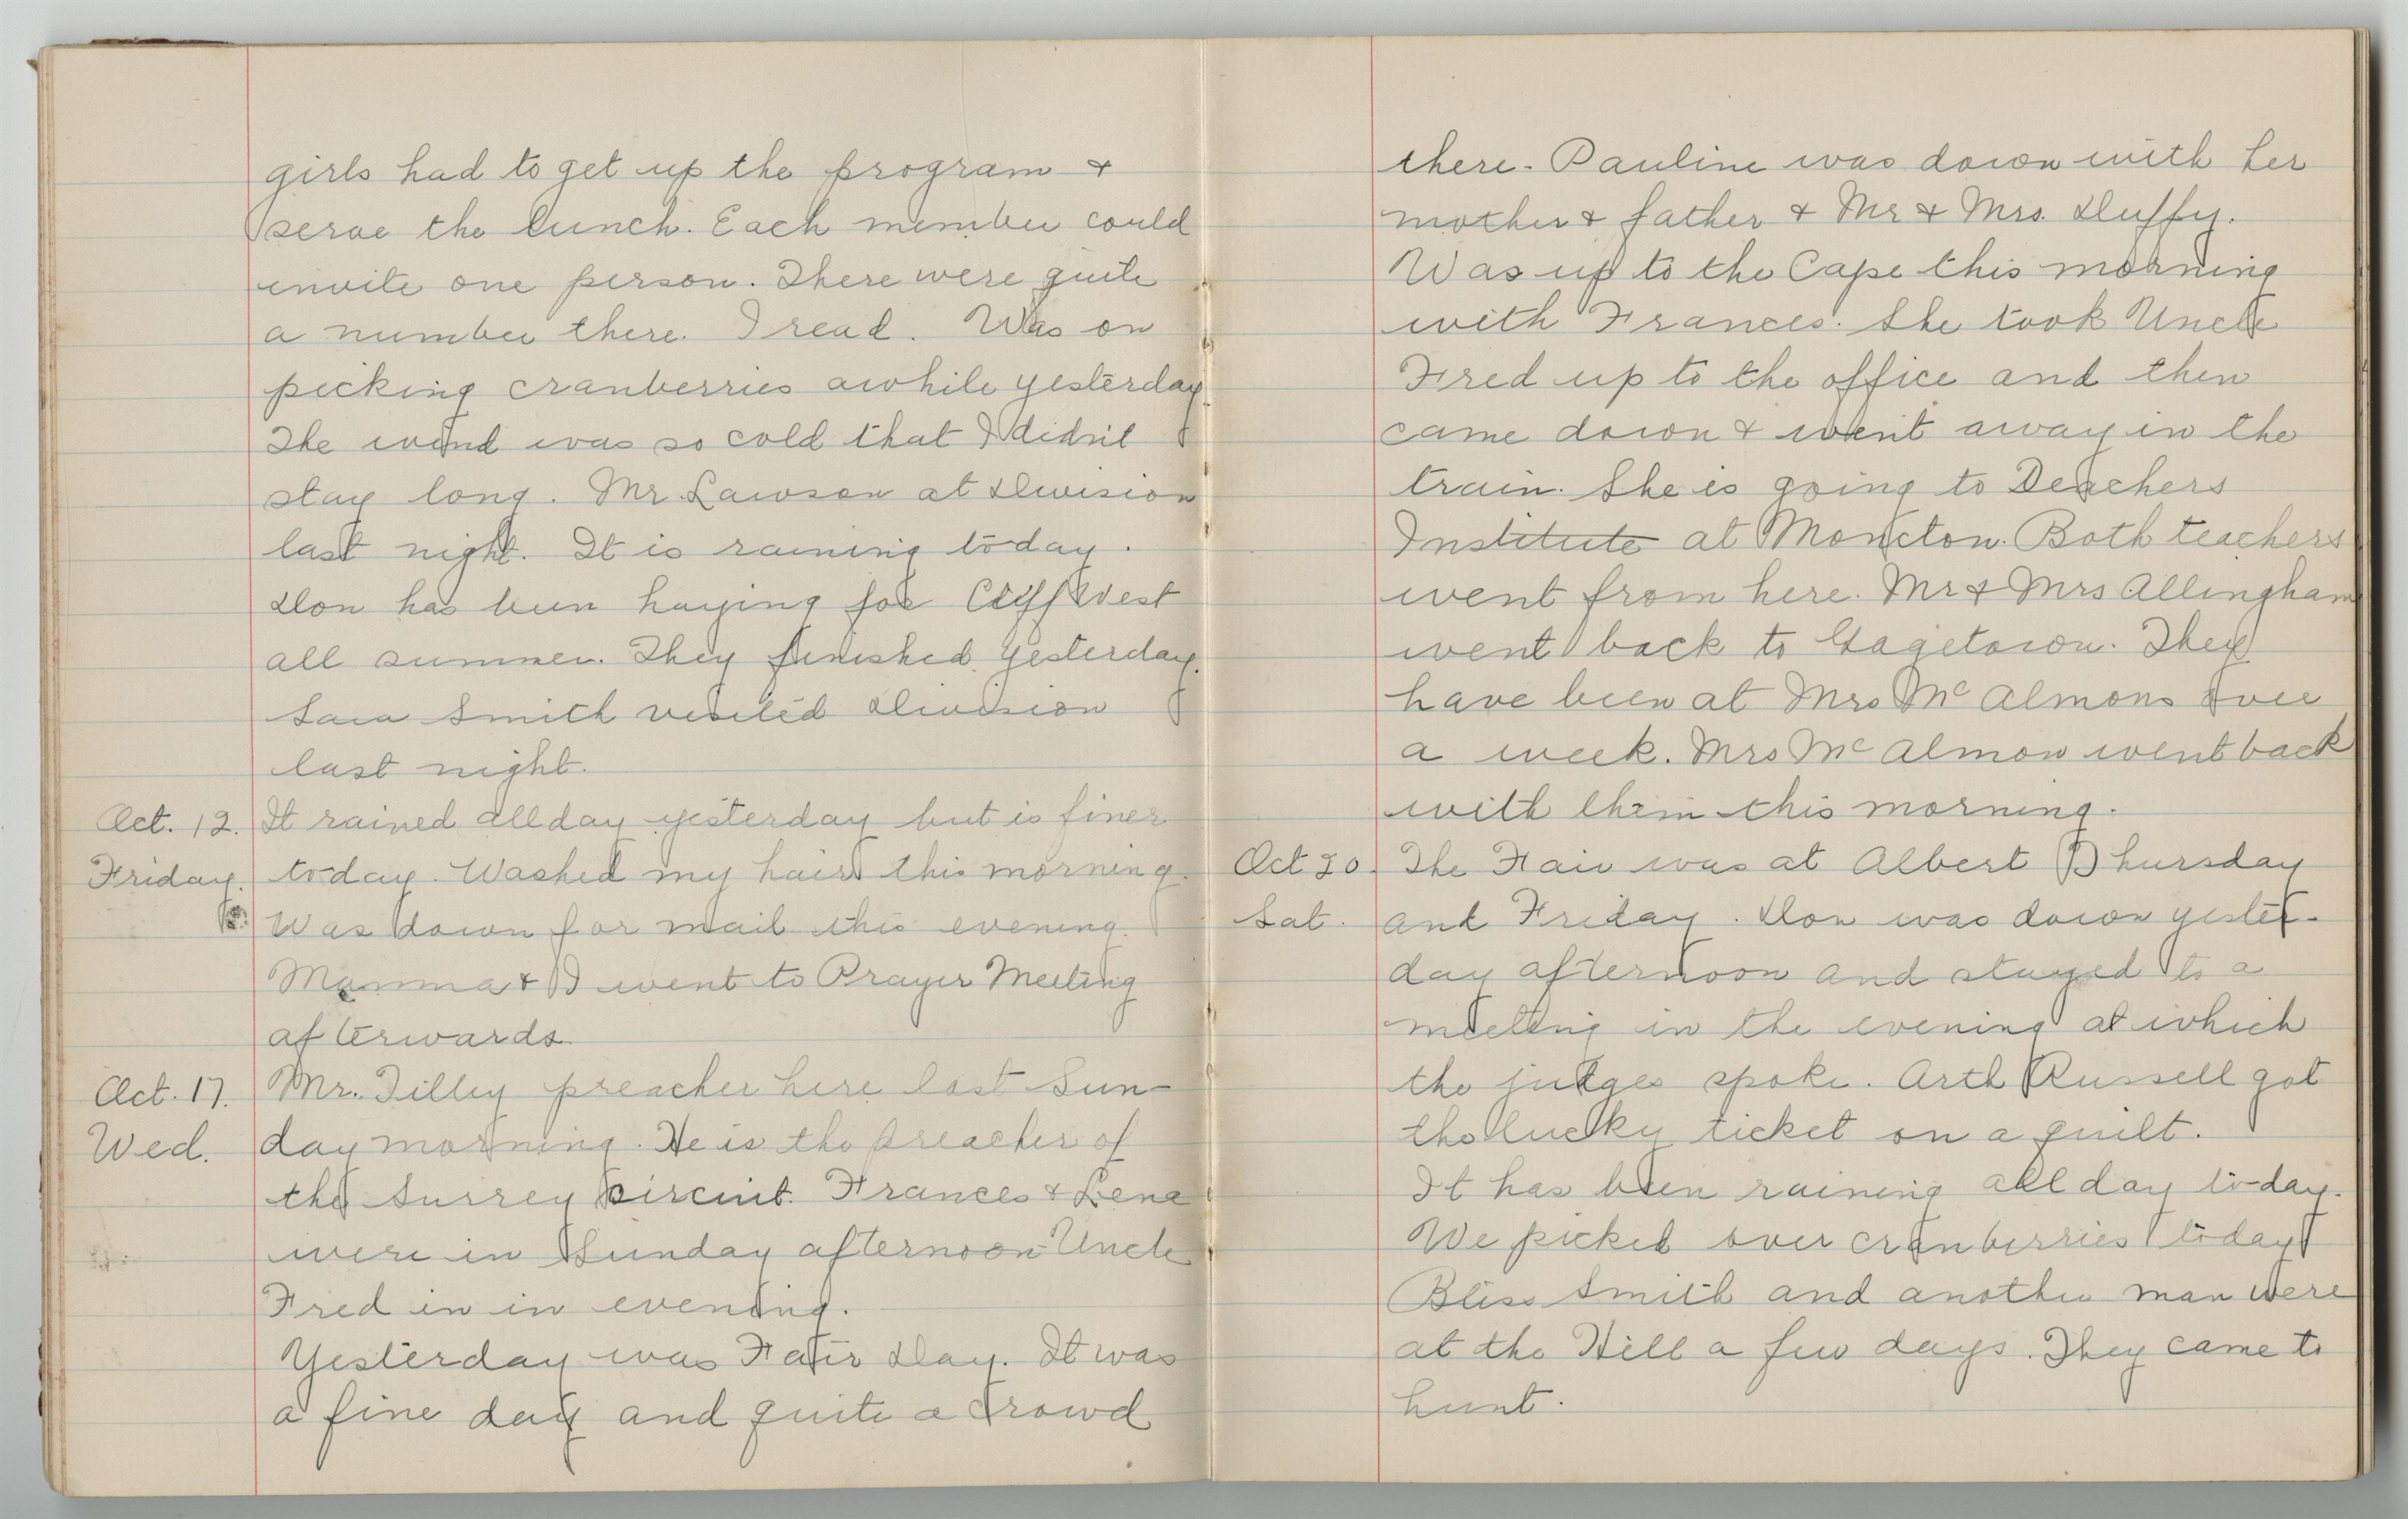 girls had to get up the program &
serve the lunch. Each member could
invite one person. There were quite
a number there. I read. Was on
picking cranberries awhile yesterday
The wind was so cold that I didn't
stay long. Mr. Lawson at Division
last night. It is raining to-day.
Don has been haying for Cliff West
all summer. They finished yesterday.
Sara Smith visited Division
last night.
Oct. 12. It rained all day yesterday but is finer
Friday. to-day. Washed my hair this morning.
Was down for mail this evening.
Mamma & I went to Prayer Meeting
afterwards.
Oct. 17. Mr. Tilley preacher here last Sun-
Wed. day morning. He is the preacher of
the Surrey circuit. Frances & Lena
were in Sunday afternoon Uncle
Fred in in evening.
Yesterday was Fair Day. It was
a fine day and quite a crowd
there. Pauline was down with her
mother & father & Mr & Mrs. Duffy.
Was up to the Cape this morning
with Frances. She took Uncle
Fred up to the office and then
came down & went away in the
train. She is going to Teachers
Institute at Moncton. Both teachers
went from here. Mr & Mrs Allingham
went back to Gagetown. They
have been at Mrs McAlmons over
a week. Mrs McAlmon went back
with them this morning.
Oct 20. The Fair was at Albert Thursday
Sat. and Friday. Don was down yester-
day afternoon and stayed to a
meeting in the evening at which
the judges spoke. Arth Russell got
the lucky ticket on a quilt.
It has been raining all day to-day.
We picked over cranberries to day
Bliss Smith and another man were
at the Hill a few days. They came to
hunt.